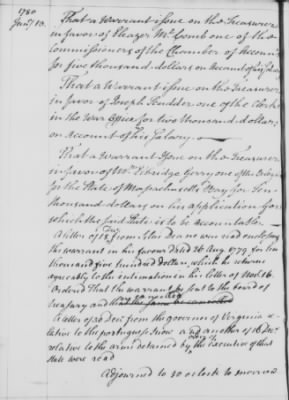 1780
Jany 10.
That a warrant issue on the Treasurer
in favor of Eleazer McComb one of the
commissioners of the Chamber of Accounts
for five thousand dollars on Account of his Salary
That a Warrant issue on the Treasurer
in favor of Joseph Scudder one of the Clerks
in the War Office for two thousand dollars
on account of his Salary.
That a Warrant issue on the Treasurer
in favor of Mr Elbridge Gerry one of the
for the State of Massachusetts Bay for ten
thousand dollars on his application for
which the said State is to be accountable
A letter of 18 Decr from Silas Deane was read enclosing
the warrant in his favour Dated 26 Aug 1779. for ten
thousand five hundred dollars, which he returns
agreeably to the intimation in his letter of Novr 16.
Ordered That the warrant be sent to the board of
treasury and that the same be cancelled
A letter of 20 Decr from the governor of Virginia re-
lative to the portuguese snow and another of 16 Decr
relative to the arms detained by order of the Executive of that
State were read
Adjourned to 10 oClock to morrow